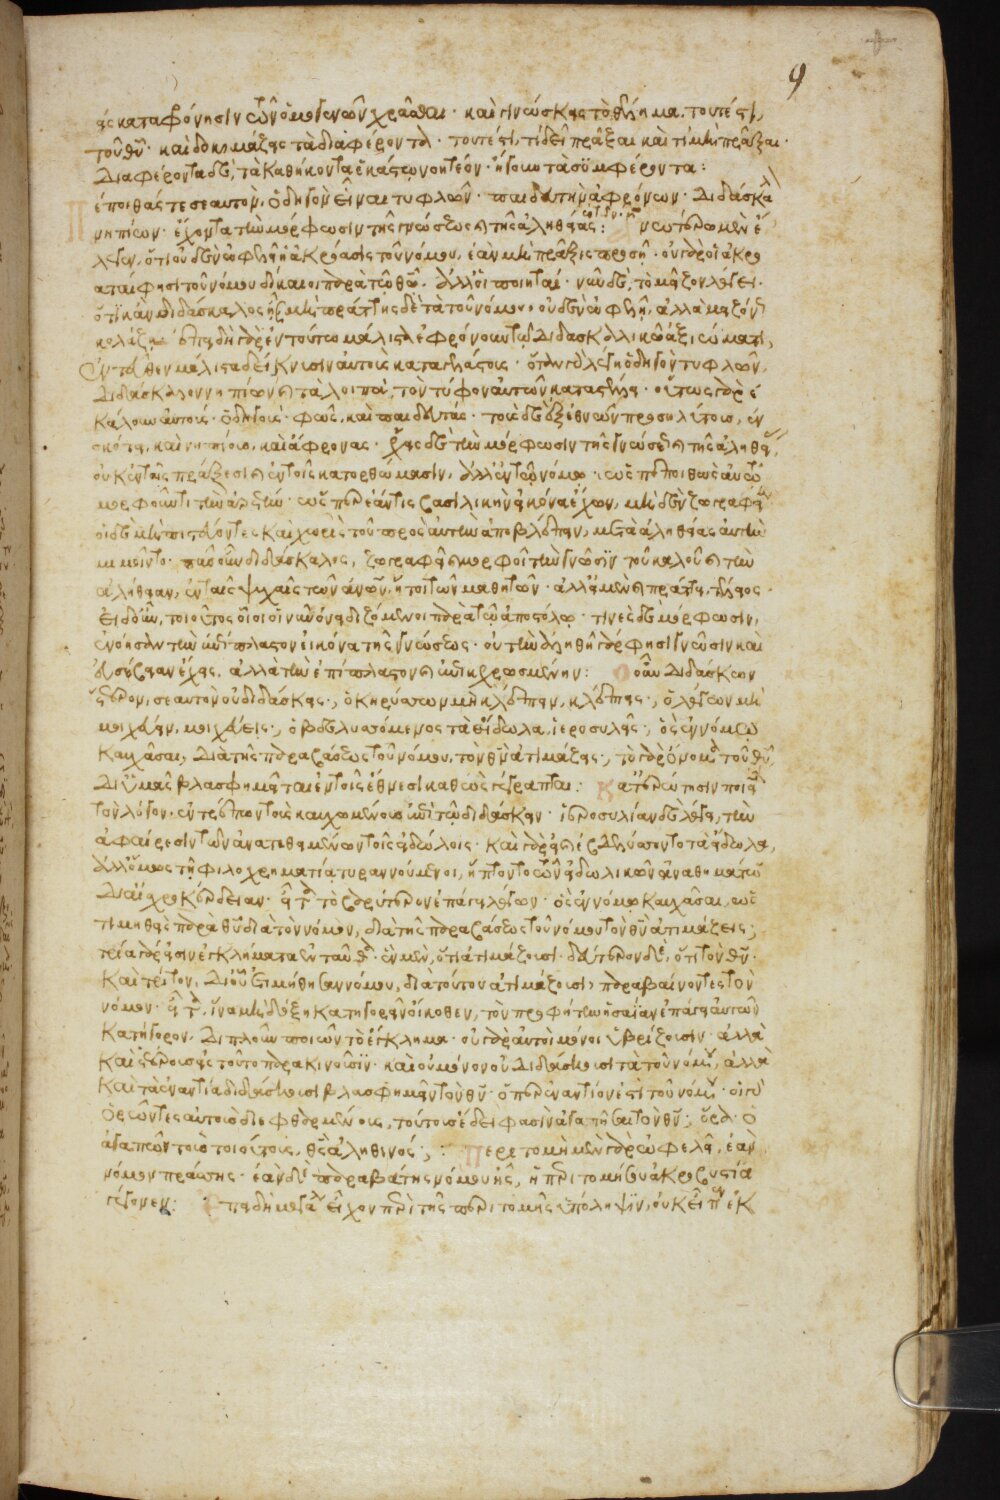 9
εἰς καταφρόνησιν τῶν ὁμογενῶν χρᾶσθαι· καὶ γινώσκεις τὸ θέλημα. τουτέστι,
τοῦ θυ̅· καὶ δοκιμάζεις τὰ διαφέροντα· τουτέστι, τί δεῖ πρᾶξαι καὶ τί μὴ πρᾶξαι·
Διαφέροντα δὲ, τὰ καθήκοντα ἑκάστῳ νοητέον· ἤγουν τὰ συμφέροντα:
πέποιθάς τε σεαυτὸν, ὁδηγὸν εἶναι τυφλῶν· παιδευτὴν ἀφρόνων· διδάσκαλ
νηπίων· ἔχοντα τὴν μόρφωσιν τῆς γνώσεως καὶ τῆς ἀληθείας:
λεγεν, ὅτι οὐδὲν ὠφελεῖ ἡ ἀκρόασις τοῦ νόμου, ἐὰν μὴ πρᾶξις προσῇ· οὐ γὰρ οἱ ἀκρο
αταί φησι τοῦ νόμου δίκαιοι παρὰ τῷ θω̅. ἀλλ' οἱ ποιηταί· νῦν δὲ, τὸ μεῖζον λέγει·
ὅτι κἂν διδάσκαλος ᾖς μὴ πράττῃς δὲ τὰ τοῦ νόμου, οὐδὲν ὠφελῇ, ἀλλὰ μεῖζόν
κολάζῃ ἐπειδὴ γὰρ ἐν τούτῳ μάλιστα ἐφρόνουν τῷ διδασκαλικῷ ἀξιώματι,
ἐντεῦθεν μάλιστα δείκνυσιν αὐτοὺς καταγελάστους· ὅταν γὰρ λέγῃ ὁδηγὸν τυφλῶν,
διδάσκαλον νηπίων καὶ τὰ λοιπὰ, τὸν τύφον αὐτῶν καταγελᾷ· οὕτως γὰρ ἐ
κάλουν αὐτοὺς· ὁδηγοὺς· φῶς, καὶ παιδευτάς· τοὺς δὲ ἐξ ἐθνῶν προσηλύτους, ἐν
σκότει, καὶ νηπίους, καὶ ἄφρονας· ἔχεις δὲ τὴν μόρφωσιν τῆς γνώσεως καὶ τῆς ἀληθεί
οὐκ ἐν ταῖς πράξεσι καὶ ἐν τοῖς κατορθώμασιν, ἀλλ' ἐν τῷ νόμῳ· ὡς πεποιθὼς ἐν αὐτῷ
μορφοῦντι τὴν ἀρετήν· ὥσπερ ἐάν τις βασιλικὴν εἰκόνα ἔχων, μηδὲν ζωγραφεῖ
οἱ δὲ μὴ πιστευθέντες καὶ χωρὶς τοῦ πρὸς αὐτὴν ἀποβλέπειν, μετὰ ἀληθείας αὐτὴν
μιμοῖντο· πᾶς οὖν διδάσκαλος, ζωγραφεῖ καὶ μορφοῖ τὴν γνῶσιν τοῦ καλοῦ καὶ τὴν
ἀλήθειαν, ἐν ταῖς ψυχαῖς τῶν αὐτοῦ, ἤτοι τῶν μαθητῶν· ἀλλ' εἰ μὲν καὶ πράττει, τέλειος·
εἰ δ' οὖν, τοιοῦτος οἷοι οἱ νῦν ὀνειδιζόμενοι παρὰ τῷ ἀποστόλῳ· τινὲς δὲ μόρφωσιν,
ἐνόησαν τὴν ἐπίπλαστον εἰκόνα τῆς γνώσεως· οὐ τὴν ἀληθῆ γάρ φησι γνῶσιν καὶ
εὐσέβειαν ἔχεις, ἀλλὰ τὴν ἐπίπλαστον καὶ ἐπικεχρωσμένην: Ὁ οὖν διδάσκων
ἕτερον, σεαυτὸν οὐ διδάσκεις; ὁ κηρύσσων μὴ κλέπτειν, κλέπτεις; ὁ λέγων μὴ
μοιχεύειν, μοιχεύεις; ὁ βδελυσσόμενος τὰ εἴδωλα, ἱεροσυλεῖς; ὃς ἐν νόμῳ
καυχᾶσαι, διὰ τῆς παραβάσεως τοῦ νόμου, τὸν θν̅ ἀτιμάζεις; τὸ γὰρ ὄνομα τοῦ θυ̅
δι' ὑμᾶς βλασφημεῖται ἐν τοῖς ἔθνεσι καθὼς γέγραπται: Κατ' ἐρώτησιν ποιεῖ
τὸν λόγον· ἐντρέπων τοὺς καυχωμένους ἐπὶ τῷ διδάσκειν· ἱεροσυλίαν δὲ λέγει, τὴν
ἀφαίρεσιν τῶν ἀνατιθεμένων τοῖς εἰδώλοις· καὶ γὰρ εἰ ἐβδελύσσοντο τὰ εἴδωλα,
ἀλλ' ὅμως τῇ φιλοχρηματίᾳ τυραννούμενοι, ἥπτοντο τῶν εἰδωλικῶν ἀναθημάτων
δι' αἰσχροκέρδειαν· εἶτα τὸ βαρύτερον ἐπάγει λέγων· ὃς ἐν νόμῳ καυχᾶσαι, ὡς
τιμηθεὶς παρὰ θυ̅ διὰ τὸν νόμον, διὰ τῆς παραβάσεως τοῦ νόμου τὸν θν̅ ἀτιμάζεις;
τρία γάρ εἰσιν ἐγκλήματα ἐνταῦθα· ἓν μὲν, ὅτι ἀτιμάζουσι· δεύτερον δὲ, ὅτι τὸν θν̅·
καὶ τρίτον, δι' οὗ ἐτιμήθησαν νόμου, διὰ τούτου ἀτιμάζουσι, παραβαίνοντες τὸν
νόμον· εἶτα, ἵνα μὴ δόξῃ κατηγορεῖν οἴκοθεν, τὸν προφήτην ἡσαΐαν ἐπάγει αὐτῶν
κατήγορον, διπλοῦν ποιῶν τὸ ἔγκλημα· οὐ γὰρ αὐτοὶ μόνοι ὑβρίζουσιν· ἀλλὰ
καὶ ἑτέρους εἰς τοῦτο παρακινοῦσιν· καὶ οὐ μόνον οὐ διδάσκουσι τὰ τοῦ νόμου, ἀλλὰ
καὶ τὰ ἐναντία διδάσκουσι βλασφημεῖν τὸν θν̅· ὅπερ ἐναντίον ἐστὶ τοῦ νόμου· οἱ γὰρ
ὁρῶντες αὐτοὺς διεφθαρμένους, τούτους ἔδει φασὶν ἀγαπῆσαι τὸν θν̅; ἆρα ὁ
ἀγαπῶν τοὺς τοιούτους, θς̅ ἀληθινός;: Περιτομὴ μὲν γὰρ ὠφελεῖ, ἐὰν
νόμον πράσσῃς· ἐὰν δὲ παραβάτης νόμου ᾖς, ἡ περιτομή σου ἀκροβυστία
γέγονεν: Ἐπειδὴ μεγάλην εἶχον περὶ τῆς περιτομῆς ὑπόληψιν, οὐκ εἶπεν ἐκ